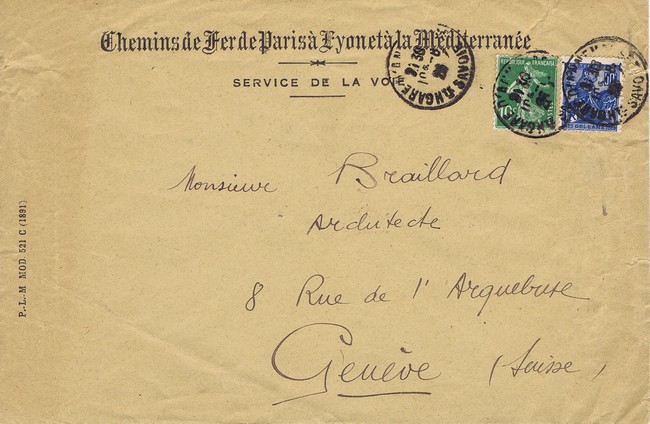 Chemins de Fer de Paris à Lyon et à la Méditerranée
SERVICE DE LA VOIE
RÉPUBLIQUE FRANÇAISE
10c
ORLÉANS
Monsieur Braillard
Architecte
8 Rue de l'Arquebuse
Genève (Suisse)
P.-L.-M MOD. 521 C (1891)